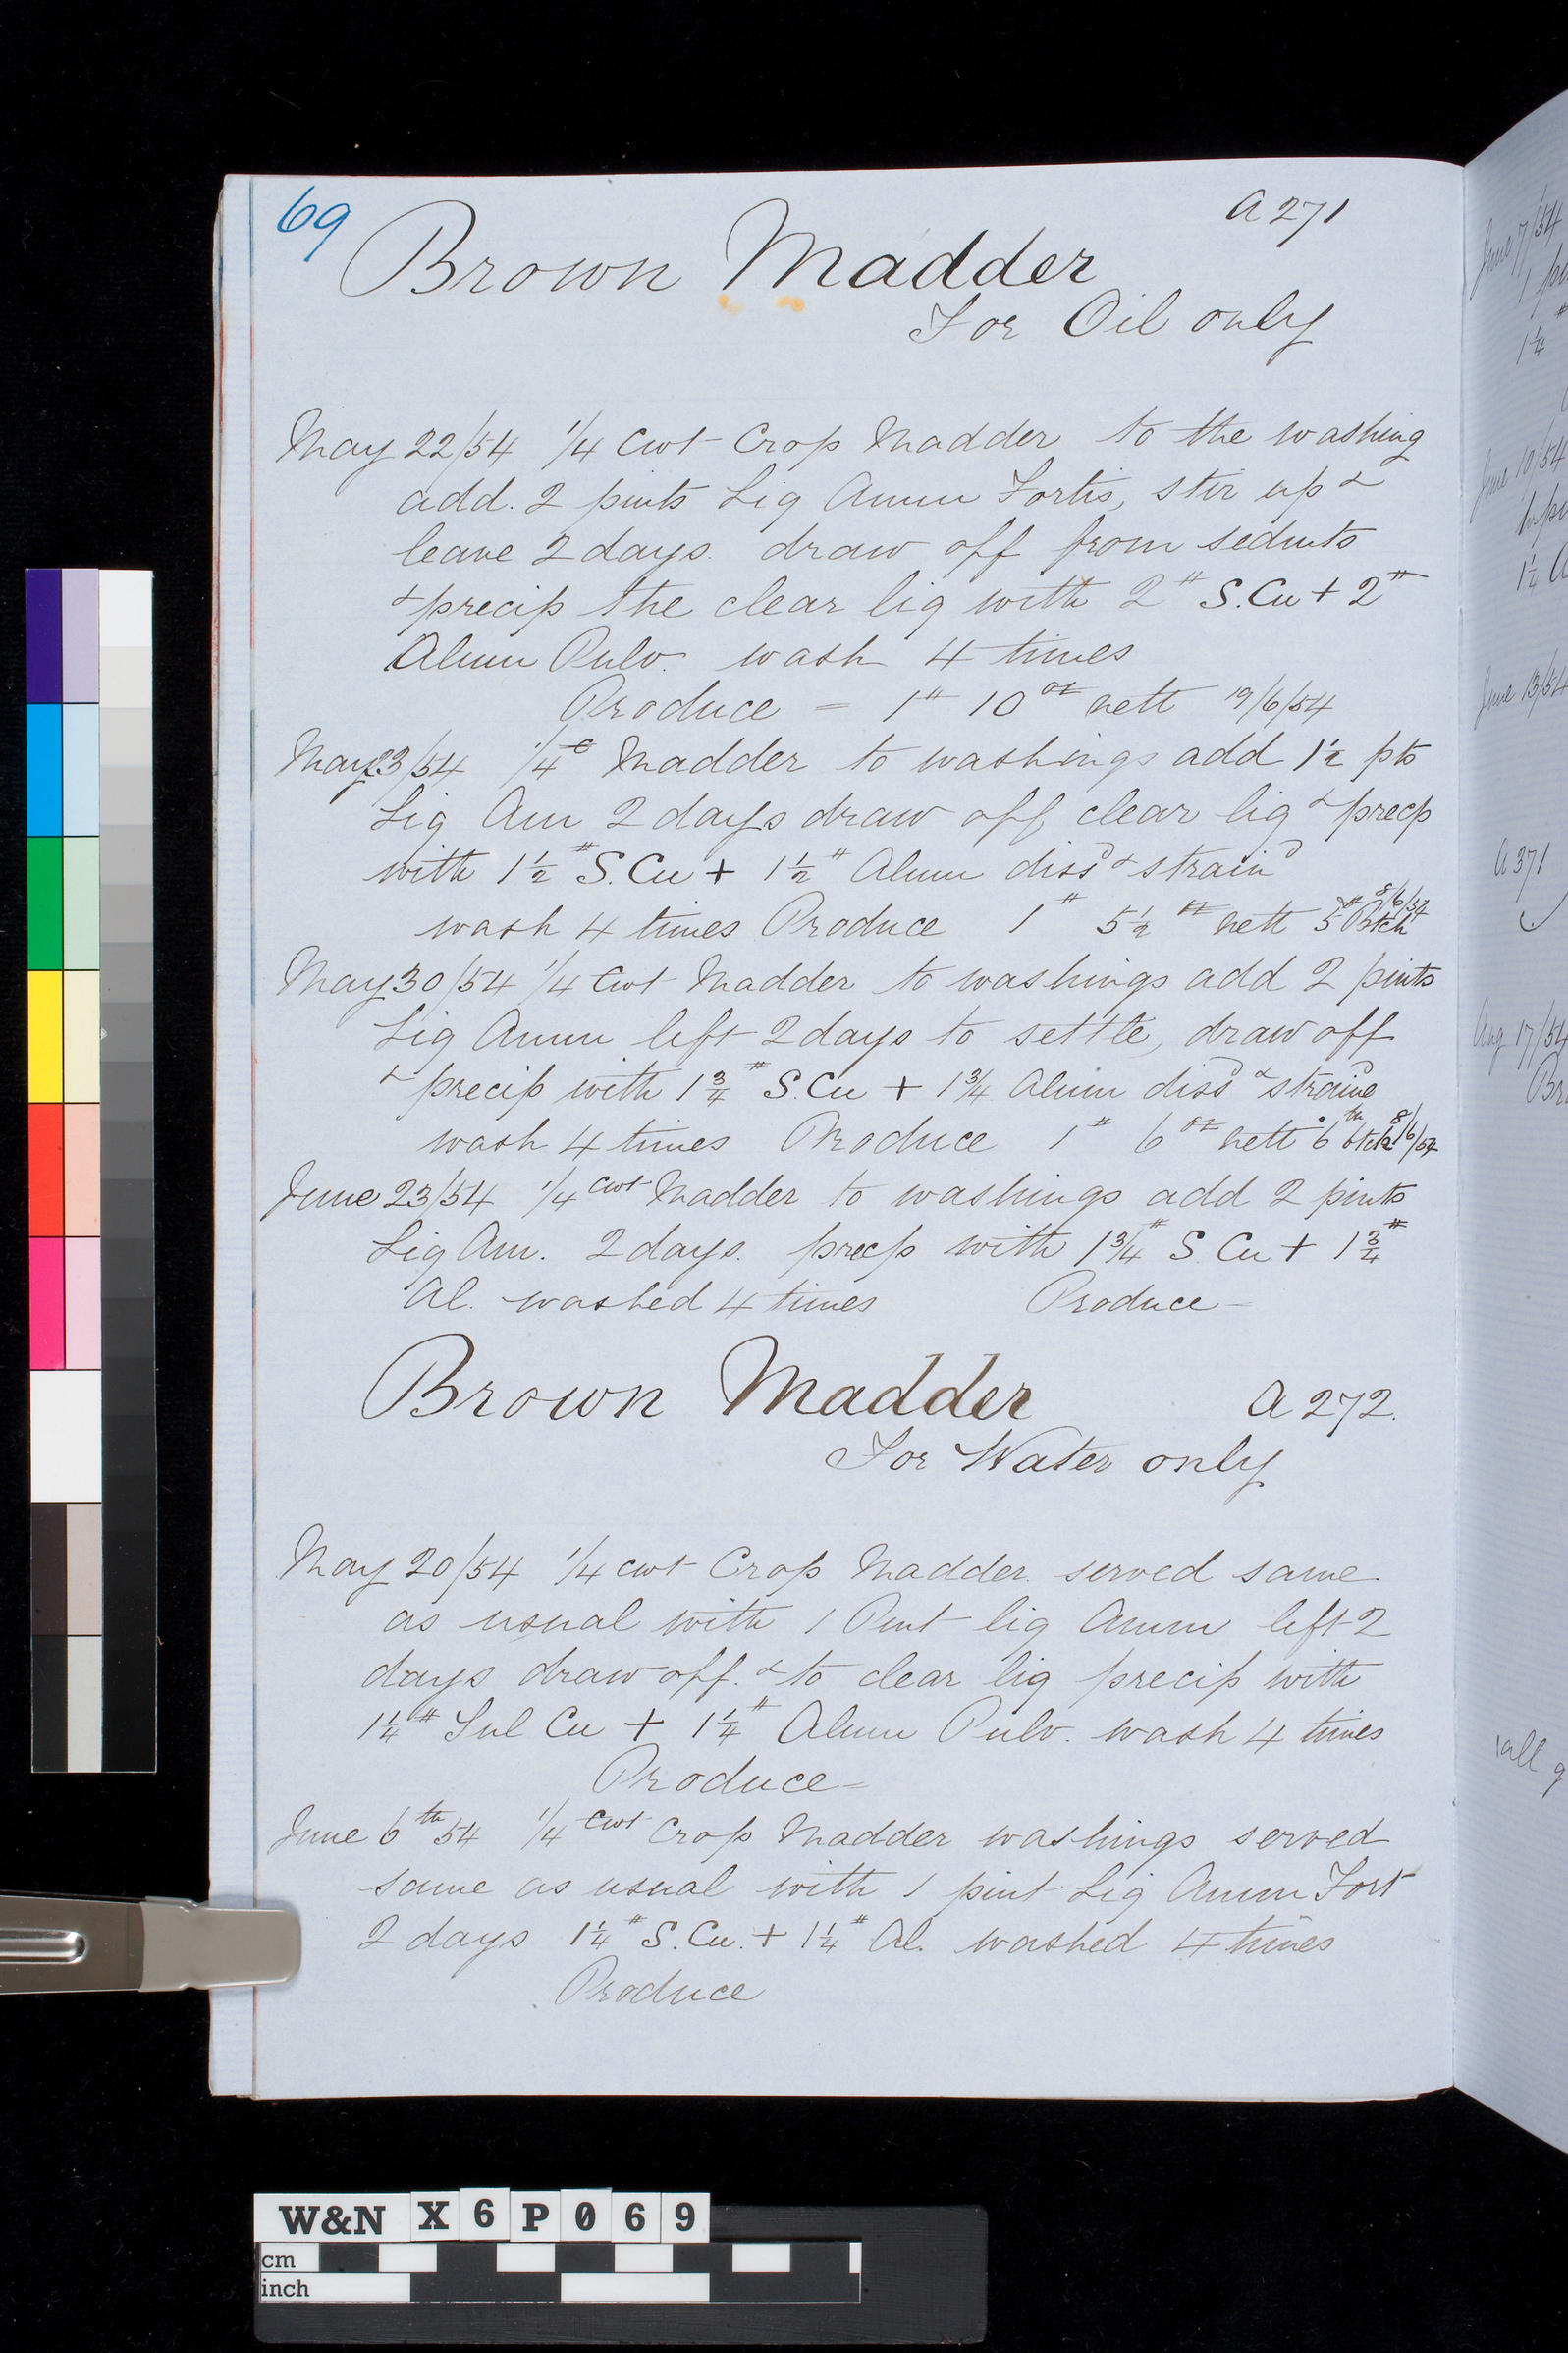 69
A 271
Brown Madder
For Oil only
May 22/54 1/4 cwt Crop Madder to the washing
add. 2 pints Liq Amm Fortis, stir up &
leave 2 days. draw off from sedmts
& precip the clear liq with 2# S.Cu + 2#
Alum Pulv. wash 4 times
Produce = 1# 10 oz nett 19/6/54
May 23/54 1/4 c Madder to washings add 1½ pts
Liq Am 2 days draw off clear liq & precp
with 1½# S.Cu + 1½# Alum dissd & straind
wash 4 times Produce 1# 5½ oz nett 5th Btch 8/6/54
May 30/54 1/4 Cwt Madder to washings add 2 pints
Liq Amm left 2 days to settle, draw off
& precip with 1¾# S.Cu + 1¾ Alum dissd & straind
wash 4 times Produce 1# 6 oz nett 6th btch 8/6/54
June 23/54 1/4 cwt Madder to washings add 2 pints
Liq Am. 2 days. precp with 1¾# S Cu + 1¾#
Al. washed 4 times Produce -
Brown Madder A 272.
For Water only
May 20/54 1/4 cwt Crop Madder served same
as usual with 1 Pint liq Amm left 2
days draw off. & to clear liq precip with
1¼# Sul Cu + 1¼# Alum Pulv. wash 4 times
Produce =
June 6th 54 1/4 cwt Crop Madder washings served
same as usual with 1 pint Liq Amm Fort
2 days 1¼# S.Cu. + 1¼# Al. washed 4 times
Produce
June 7/54
1¼
June 10/54
1¼ A
June 13/54
A 371
Aug 17/54
W&N X6P069
cm
inch